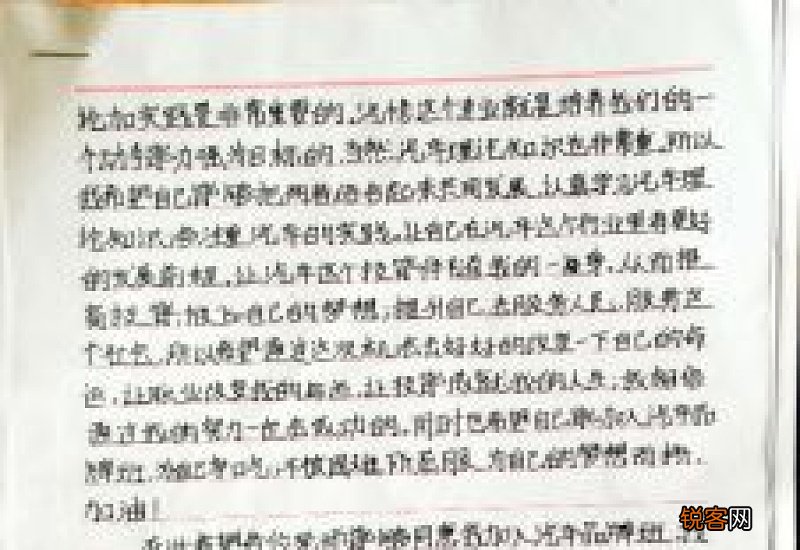 论加实践是非常重要的，汽修这个专业就是培养我们的一
个动手能力强为目标的，当然，汽车理论知识也非常重，所以
我希望自己能够把两者结合起来共同发展，认真学习汽车理
论知识，注重汽车的实践，让自己在汽车这个行业里有更好
的发展前程，让汽车这个技能伴随我的一身，从而提
高技能，自己的梦想，自己去服务人民，服务这
个社会，所以希望通过这次机会去好好的改变一下自己的命
运，让职业改变我的命运，让技能成就我的人生，我相信
通过我的努力一定会成功的，同时也希望自己能加入汽车品
牌班，为自己争口气，不惧困难，为自己的梦想而拼，
加油！
在此希望我的能够同意我加入汽车品牌班，我
锐客网